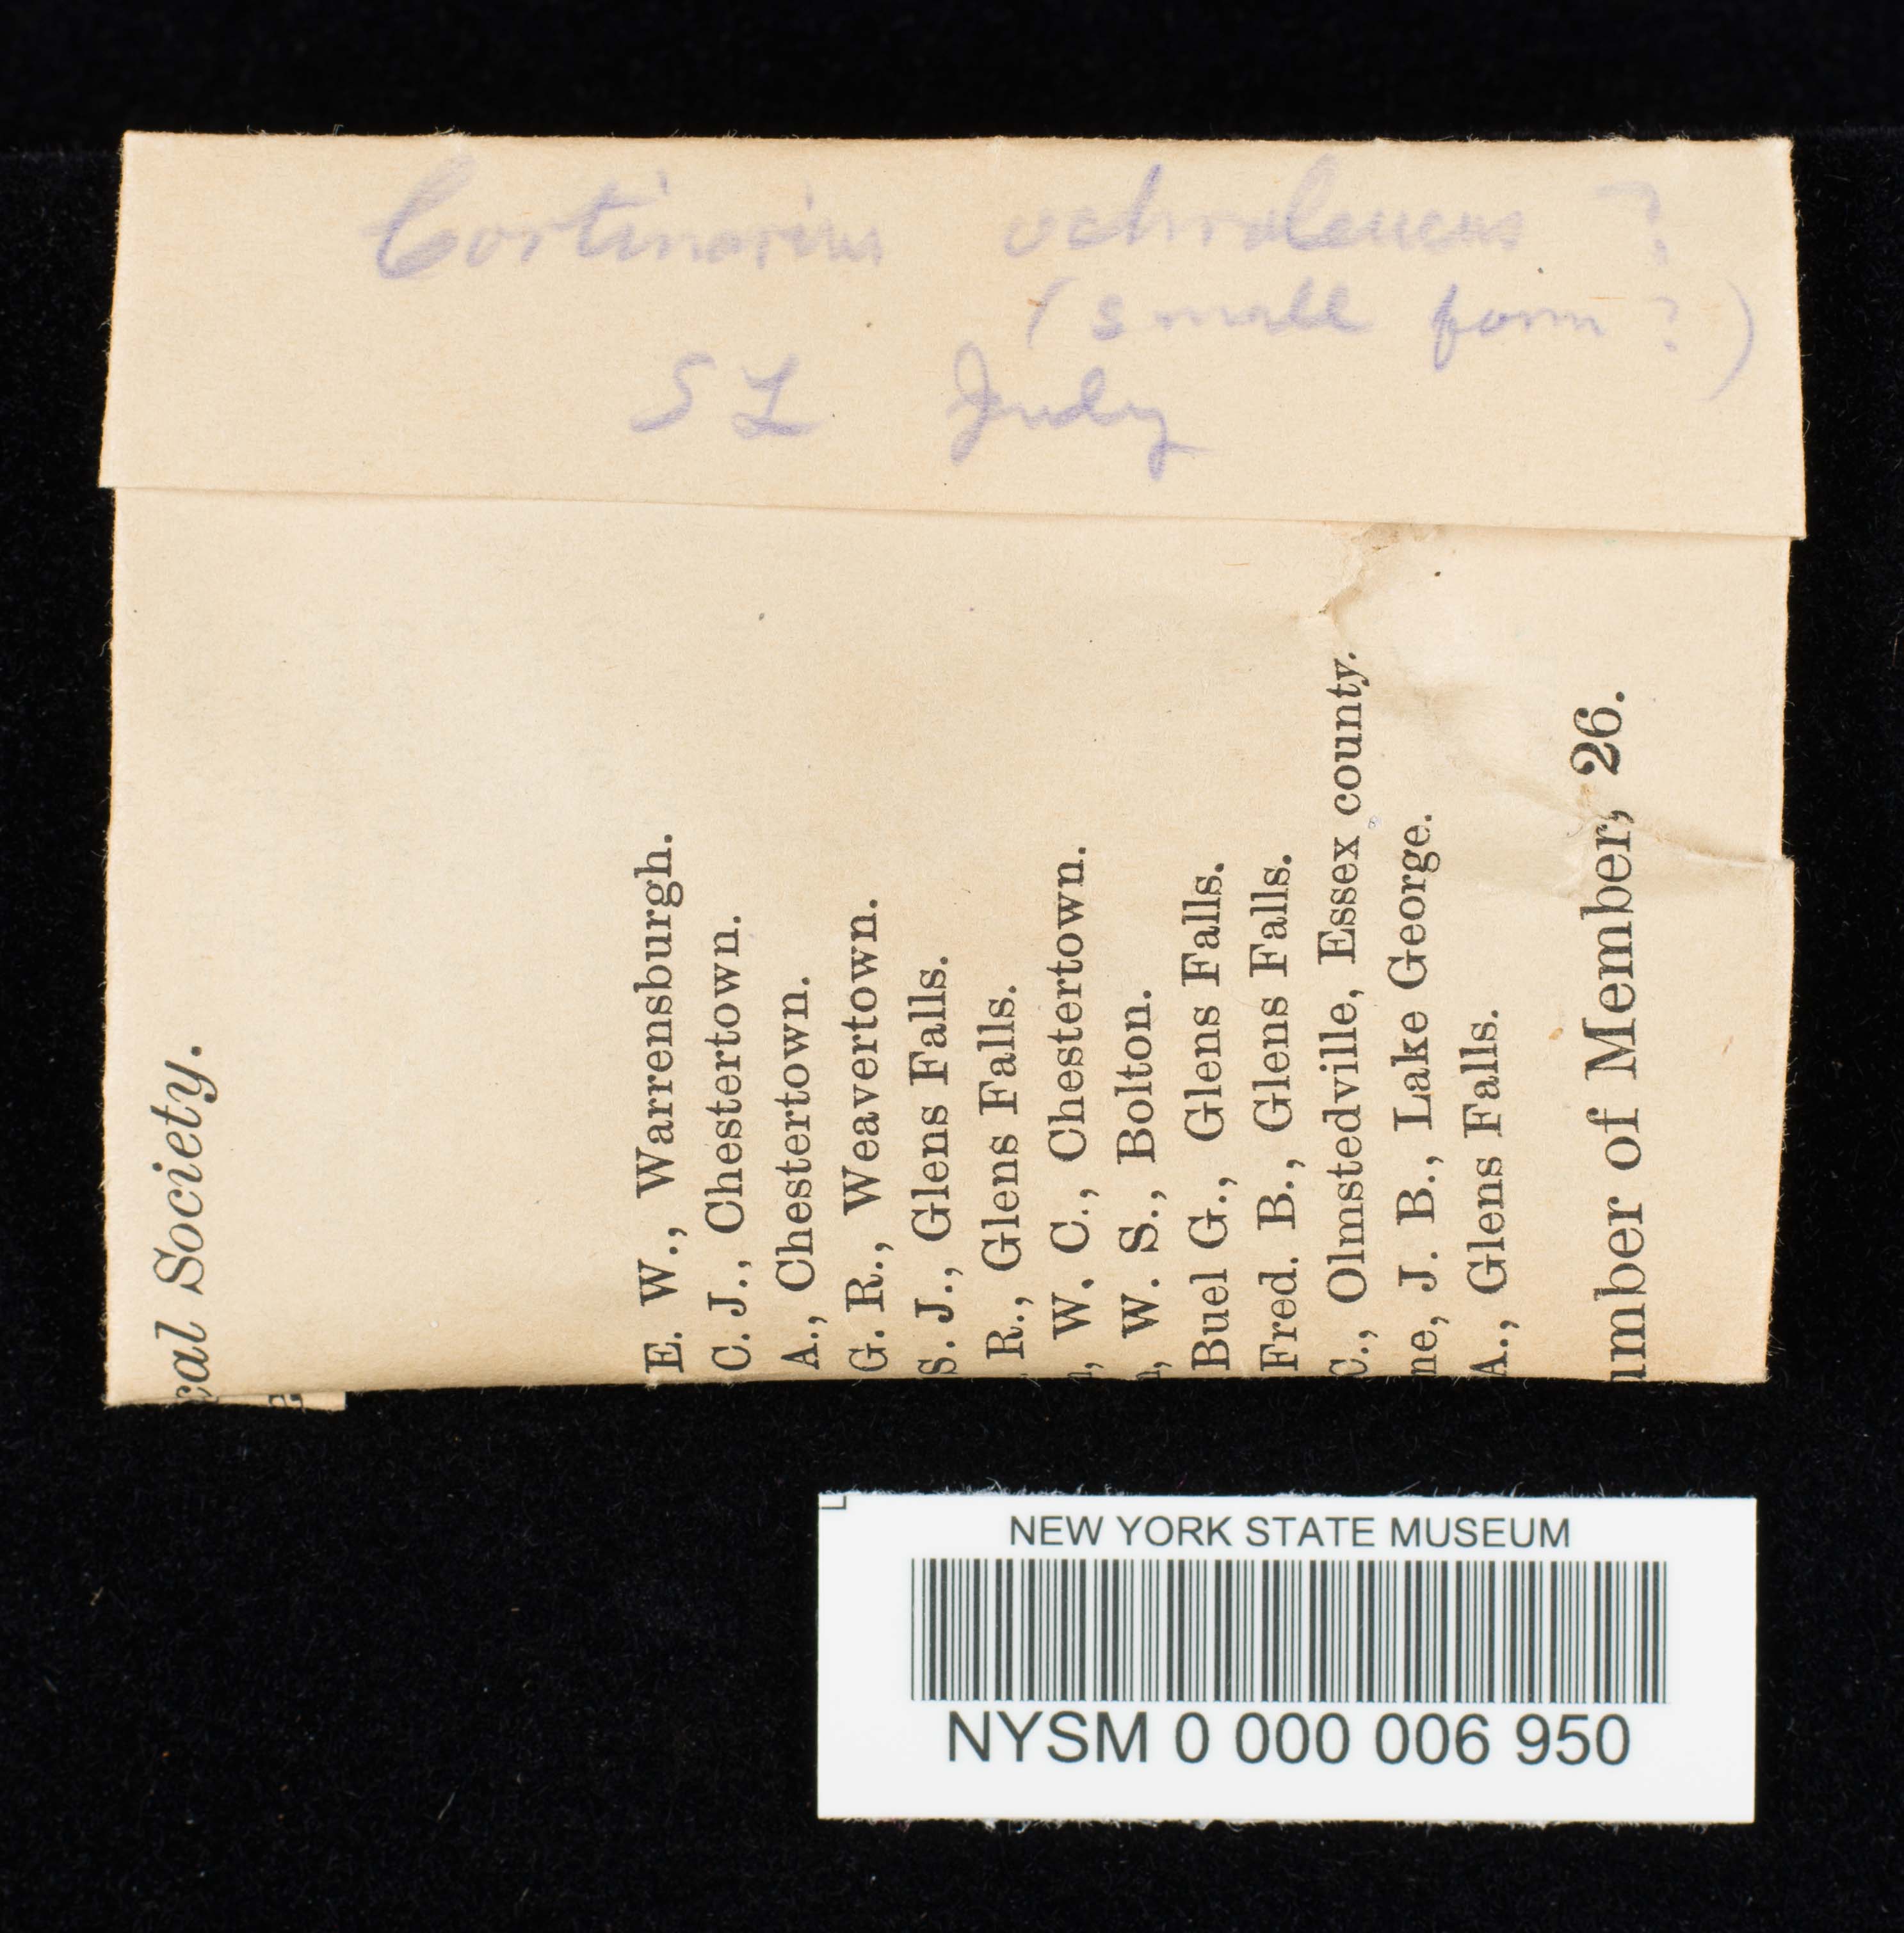 Cortinarius ochroleucus ?
(small form ?)
S L July
cal Society.
E. W., Warrensburgh.
C. J., Chestertown.
A., Chestertown.
G. R., Weavertown.
S. J., Glens Falls.
R., Glens Falls.
, W. C., Chestertown.
, W. S., Bolton.
Buel G., Glens Falls.
Fred. B., Glens Falls.
C., Olmstedville, Essex county.
ne, J. B., Lake George.
A., Glens Falls.
umber of Member, 26.
NEW YORK STATE MUSEUM
NYSM 0 000 006 950